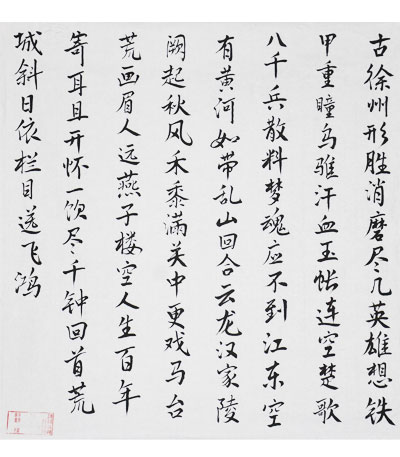 古徐州形胜消磨尽几英雄想铁
甲重瞳乌骓汗血玉帐连空楚歌
八千兵散料梦魂应不到江东空
有黄河如带乱山回合云龙汉家陵
阙起秋风禾黍满关中更戏马台
荒画眉人远燕子楼空人生百年
寄耳且开怀一饮尽千钟回首荒
城斜日依栏目送飞鸿